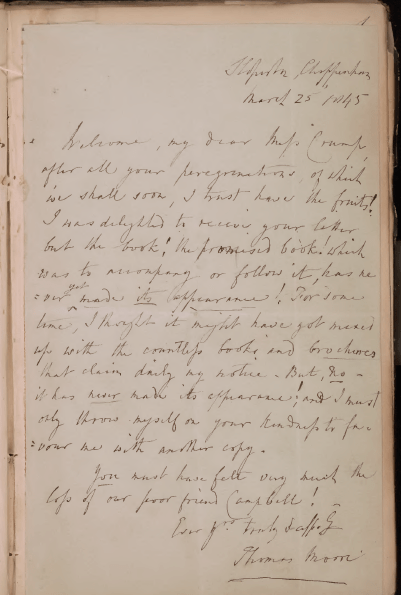 1
Sloperton, Chippenham
March 25 1845
Welcome, my dear Miss Crump,
after all your peregrinations, of which
we shall soon, I trust have the fruits!
I was delighted to receive your letter
but the book! the promised book! which
was to accompany or follow it, has ne
=ver yet made its appearance! For some
time, I thought it might have got mixed
up with the countless books and brochures
that claim daily my notice. But, no -
it has never made its appearance; and I must
only throw myself on your kindness to fa=
=vour me with another copy.
You must have felt very much the
loss of our poor friend Campbell!
Ever yrs truly & affly
Thomas Moore